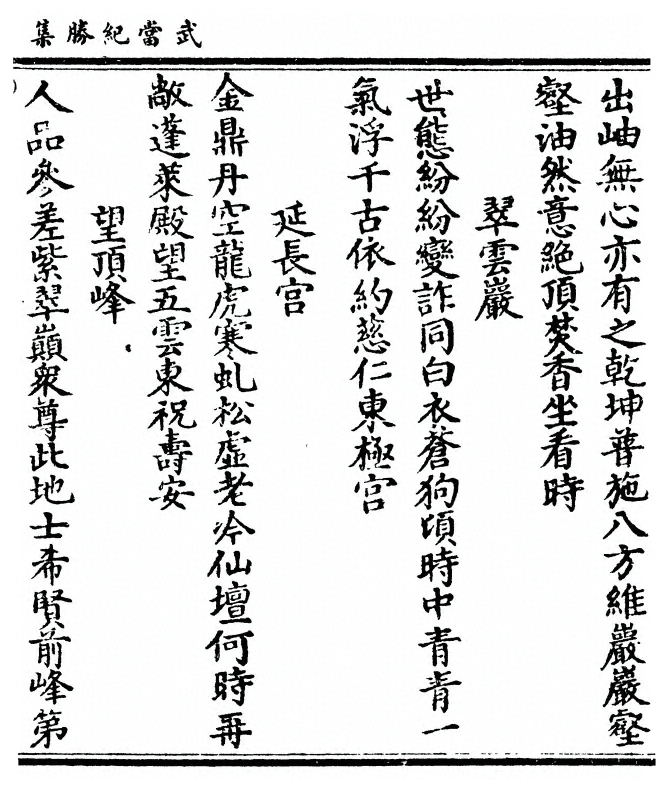 武當紀勝集
出岫無心亦有之乾坤普施八方維巖巖壑
壑油然意絶頂焚香坐看時
翠雲巖
世態紛紛變詐同白衣蒼狗頃時中青青一
氣浮千古依約慈仁東極宮
延長宮
金鼎丹空龍虎寒虬松虛老冷仙壇何時再
敞蓬萊殿望五雲東祝壽安
望頂峰
人品參差紫翠巔衆尊此地士希賢前峰第